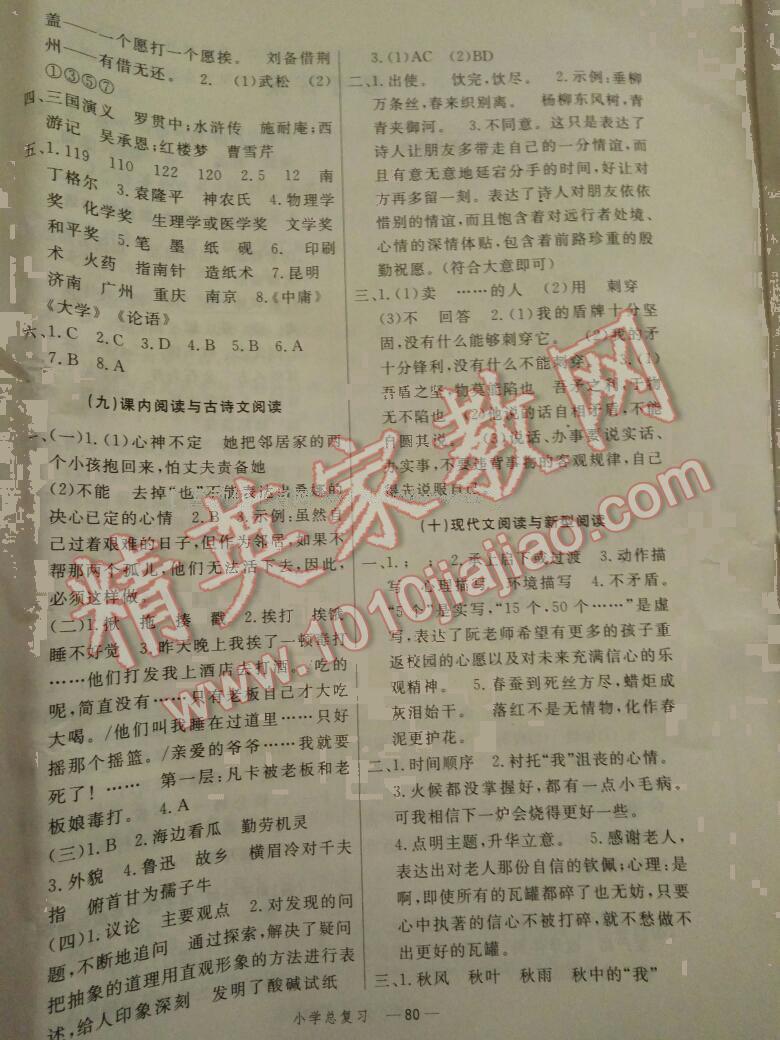 盖——一个愿打一个愿挨。 刘备借荆
州——有借无还。 2. (1)武松 (2)
①③⑤⑦
四、三国演义 罗贯中;水浒传 施耐庵;西
游记 吴承恩;红楼梦 曹雪芹
五、1.119 110 122 120 2.5 12 南
丁格尔 3.袁隆平 神农氏 4.物理学
奖 化学奖 生理学或医学奖 文学奖
和平奖 5.笔 墨 纸 砚 6. 印刷
术 火药 指南针 造纸术 7.昆明
济南 广州 重庆 南京 8.《中庸》
《大学》《论语》
六、1.C 2.C 3.D 4.B 5.B 6.A
7.B 8.A
(九)课内阅读与古诗文阅读
一、(一)1.(1)心神不定 她把邻居家的两
个小孩抱回来,怕丈夫责备她
(2)不能 去掉“也”不能表达出桑娜的
决心已定的心情 2.B 3.示例:虽然自
己过着艰难的日子,但作为邻居,如果不
帮那两个孤儿,他们无法活下去,因此,
必须这样做。
(二)1.揪 拖 揍 戳 2.挨打 挨饿
睡不好觉 3.昨天晚上我挨了一顿毒打
……他们打发我上酒店去打酒。/吃的
呢,简直没有……只有老板自己才大吃
大喝。/他们叫我睡在过道里……只好
摇那个摇篮。/亲爱的爷爷……我就要
死了!…… 第一层:凡卡被老板和老
板娘毒打。 4.A
(三)1.B 2.海边看瓜 勤劳机灵
3.外貌 4.鲁迅 故乡 横眉冷对千夫
指 俯首甘为孺子牛
(四)1.议论 主要观点 2.对发现的问
题,不断地追问 通过探索,解决了疑问
把抽象的道理用直观形象的方法进行表
述,给人印象深刻 发明了酸碱试纸
3.(1)AC (2)BD
二、1.出使。 饮完,饮尽。 2.示例:垂柳
万条丝,春来织别离。 杨柳东风树,青
青夹御河。 3.不同意。这只是表达了
诗人让朋友多带走自己的一分情谊,而
且有意无意地延宕分手的时间,好让对
方再多留一刻。表达了诗人对朋友依依
惜别的情谊,而且饱含着对远行者处境、
心情的深情体贴,包含着前路珍重的殷
勤祝愿。(符合大意即可)
三、1.(1)卖 ……的人 (2)用 刺穿
(3)不 回答 2.(1)我的盾牌十分坚
固,没有什么能够刺穿它。 (2)我的矛
十分锋利,没有什么不能刺穿。 3.(1)
吾盾之坚 物莫能陷也 吾矛之利,于物
无不陷也 (2)他说的话自相矛盾,不能
自圆其说。 (3)说话、办事要说实话、
办实事,不要违背事物的客观规律,自己
得先说服自己
(十)现代文阅读与新型阅读
一、1. ; ; 2.承上启下或过渡 3.动作描
写 心理描写 环境描写 4.不矛盾。
“5个”是实写,“15个、50个……”是虚
写,表达了阮老师希望有更多的孩子重
返校园的心愿以及对未来充满信心的乐
观精神。 5.春蚕到死丝方尽,蜡炬成
灰泪始干。 落红不是无情物,化作春
泥更护花。
二、1.时间顺序 2.衬托“我”沮丧的心情。
3.火候都没掌握好,都有一点小毛病。
可我相信下一炉会烧得更好一些。
4.点明主题,升华立意。 5.感谢老人,
表达出对老人那份自信的钦佩;心理:是
啊,即使所有的瓦罐都碎了也无妨,只要
心中执著的信心不被打碎,就不愁做不
出更好的瓦罐。
三、1.秋风 秋叶 秋雨 秋中的“我”
小学总复习 — 80 —
精英家教网
www.1010jiajiao.com